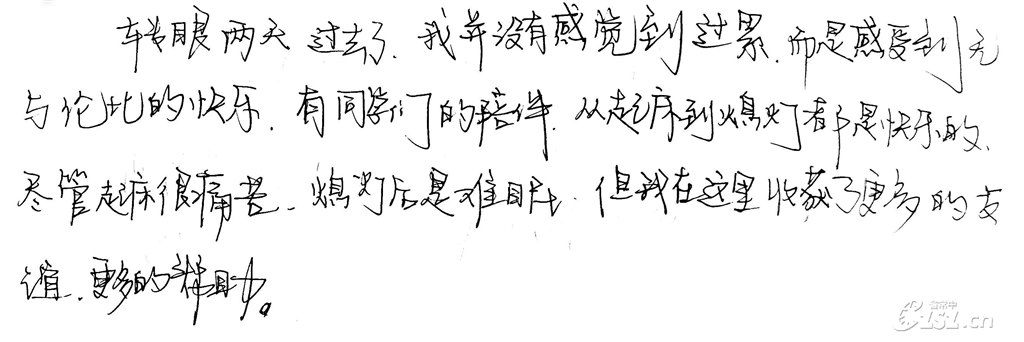 转眼两天过去了,我并没有感觉到过累,而是感受到无
与伦比的快乐,有同学们的陪伴,从起床到熄灯都是快乐的,
尽管起床很痛苦,熄灯后是难眠,但我在这里收获了更多的友
谊,更多的帮助。
151.cn